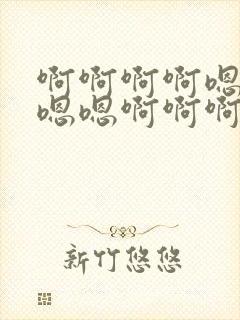 啊啊啊啊嗯
嗯嗯啊啊啊
新竹悠悠